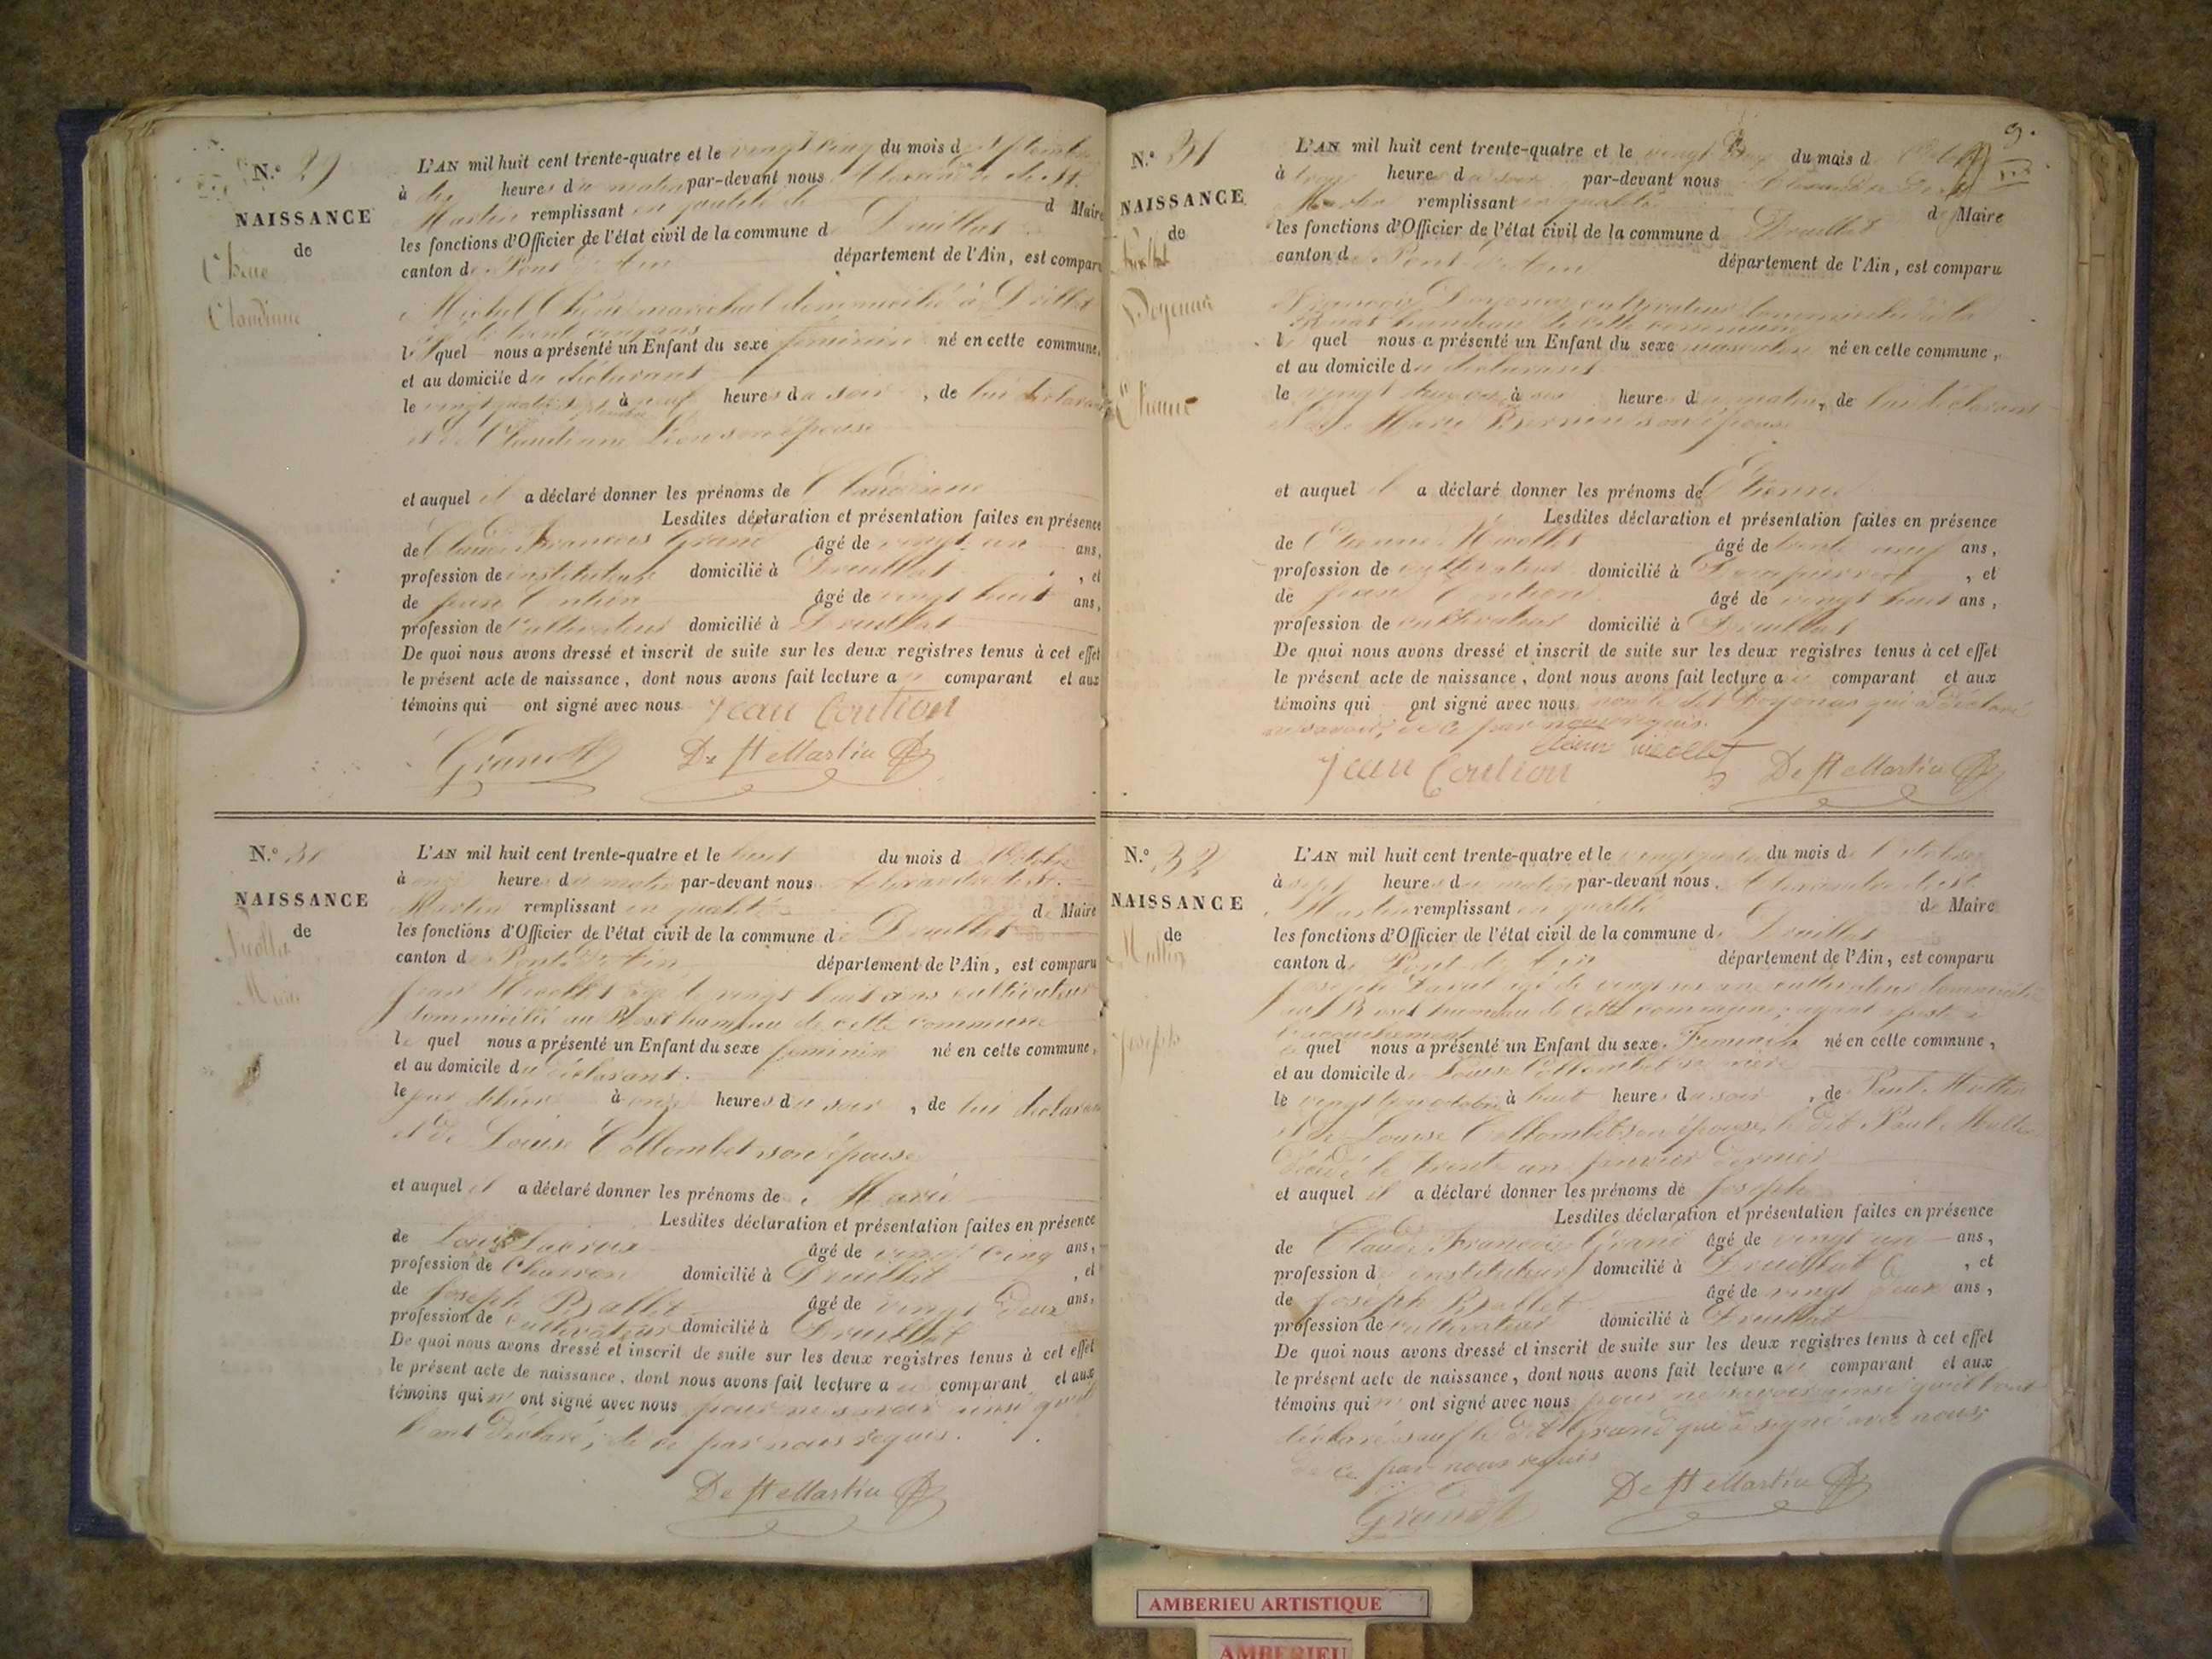 N.° 29
NAISSANCE
de
Chêne
Claudine
L'AN mil huit cent trente-quatre et le vingt cinq du mois de septembre
à dix heures du matin par-devant nous Alexandre de St.
Martin remplissant en qualité de Maire
les fonctions d'Officier de l'état civil de la commune d Druillat
canton de Pont d'Ain département de l'Ain, est comparu
Michel Chêne maréchal domicilié à Druillat
âgé de trente cinq ans
le quel nous a présenté un Enfant du sexe féminin né en cette commune,
et au domicile du déclarant
le vingt quatre septembre à neuf heures du soir, de lui déclarant
et de Claudine son épouse
et auquel il a déclaré donner les prénoms de Claudine
Lesdites déclaration et présentation faites en présence
de Claude François Grand âgé de vingt un ans,
profession de instituteur domicilié à Druillat, et
de Jean Coution âgé de vingt huit ans,
profession de Cultivateur domicilié à Druillat
De quoi nous avons dressé et inscrit de suite sur les deux registres tenus à cet effet
le présent acte de naissance, dont nous avons fait lecture au comparant et aux
témoins qui ont signé avec nous Jean Coution
Grand De St Martin
N.°
NAISSANCE
de
Nicollet
Marie
L'AN mil huit cent trente-quatre et le huit du mois d Octobre
à onze heures du matin par-devant nous Alexandre de St.
Martin remplissant en qualité de Maire
les fonctions d'Officier de l'état civil de la commune de Druillat
canton de Pont d'Ain département de l'Ain, est comparu
Jean Nicollet âgé de vingt huit ans cultivateur
domicilié au Roset hameau de cette commune
le quel nous a présenté un Enfant du sexe féminin né en cette commune,
et au domicile du déclarant.
le à onze heures du soir, de lui déclarant
et de Louise Collombet son épouse
et auquel il a déclaré donner les prénoms de Marie
Lesdites déclaration et présentation faites en présence
de Louis Lacroix âgé de vingt cinq ans,
profession de Charron domicilié à Druillat, et
de Joseph Ballet âgé de vingt deux ans,
profession de cultivateur domicilié à Druillat
De quoi nous avons dressé et inscrit de suite sur les deux registres tenus à cet effet
le présent acte de naissance, dont nous avons fait lecture au comparant et aux
témoins qui n' ont signé avec nous pour ne savoir ainsi qu'ils
l'ont déclaré, de ce par nous requis.
De St Martin
9.
N.° 31
NAISSANCE
de
Doyenas
Etienne
L'AN mil huit cent trente-quatre et le vingt du mois d
à trois heures du soir par-devant nous Alexandre de St
Martin remplissant en qualité de Maire
les fonctions d'Officier de l'état civil de la commune d Druillat
canton de Pont d'Ain département de l'Ain, est comparu
François Doyenas cultivateur domicilié
hameau de cette commune
le quel nous a présenté un Enfant du sexe masculin né en cette commune,
et au domicile du déclarant
le vingt à heures du matin, de lui déclarant
et de Marie son épouse
et auquel il a déclaré donner les prénoms de Etienne
Lesdites déclaration et présentation faites en présence
de Etienne Nicollet âgé de trente neuf ans,
profession de cultivateur domicilié à, et
de Jean Coution âgé de vingt huit ans,
profession de cultivateur domicilié à Druillat
De quoi nous avons dressé et inscrit de suite sur les deux registres tenus à cet effet
le présent acte de naissance, dont nous avons fait lecture au comparant et aux
témoins qui ont signé avec nous non le dit Doyenas qui a déclaré
ne savoir, de ce par nous requis.
Etiene nicollet
Jean Coution De St Martin
N.° 32
NAISSANCE
de
Joseph
L'AN mil huit cent trente-quatre et le vingt quatre du mois d'Octobre
à sept heures du matin par-devant nous Alexandre de St.
Martin remplissant en qualité de Maire
les fonctions d'Officier de l'état civil de la commune de Druillat
canton de Pont d'Ain département de l'Ain, est comparu
Joseph âgé de vingt ans cultivateur domicilié
au Roset hameau de cette commune, ayant assisté à
l'accouchement
le quel nous a présenté un Enfant du sexe Féminin né en cette commune,
et au domicile de Louise Collombet sa mère
le vingt trois octobre à huit heures du soir, de Paul
et de Louise Collombet son épouse, le dit Paul
décédé le trente un janvier dernier
et auquel il a déclaré donner les prénoms de Joseph
Lesdites déclaration et présentation faites en présence
de Claude François Grand âgé de vingt un ans,
profession d instituteur domicilié à Druillat, et
de Joseph Ballet âgé de vingt deux ans,
profession de cultivateur domicilié à Druillat
De quoi nous avons dressé et inscrit de suite sur les deux registres tenus à cet effet
le présent acte de naissance, dont nous avons fait lecture au comparant et aux
témoins qui n' ont signé avec nous pour ne savoir ainsi qu'ils l'ont
déclaré sauf le dit Grand qui a signé avec nous;
de ce par nous requis
De St Martin
Grand
AMBERIEU ARTISTIQUE
AMBERIEU